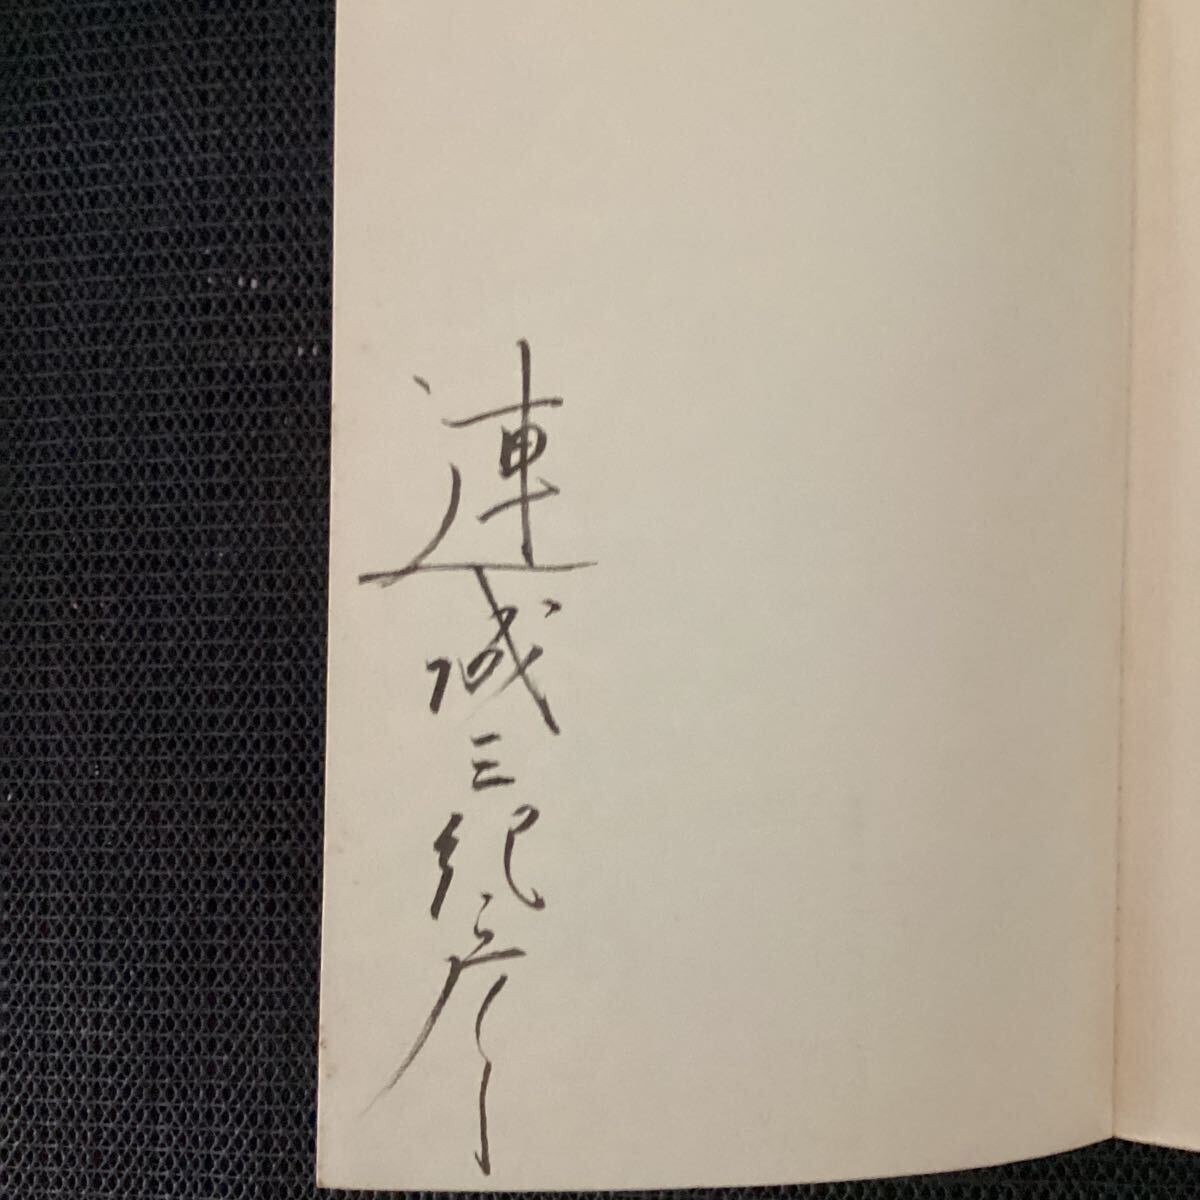 連城三紀彦